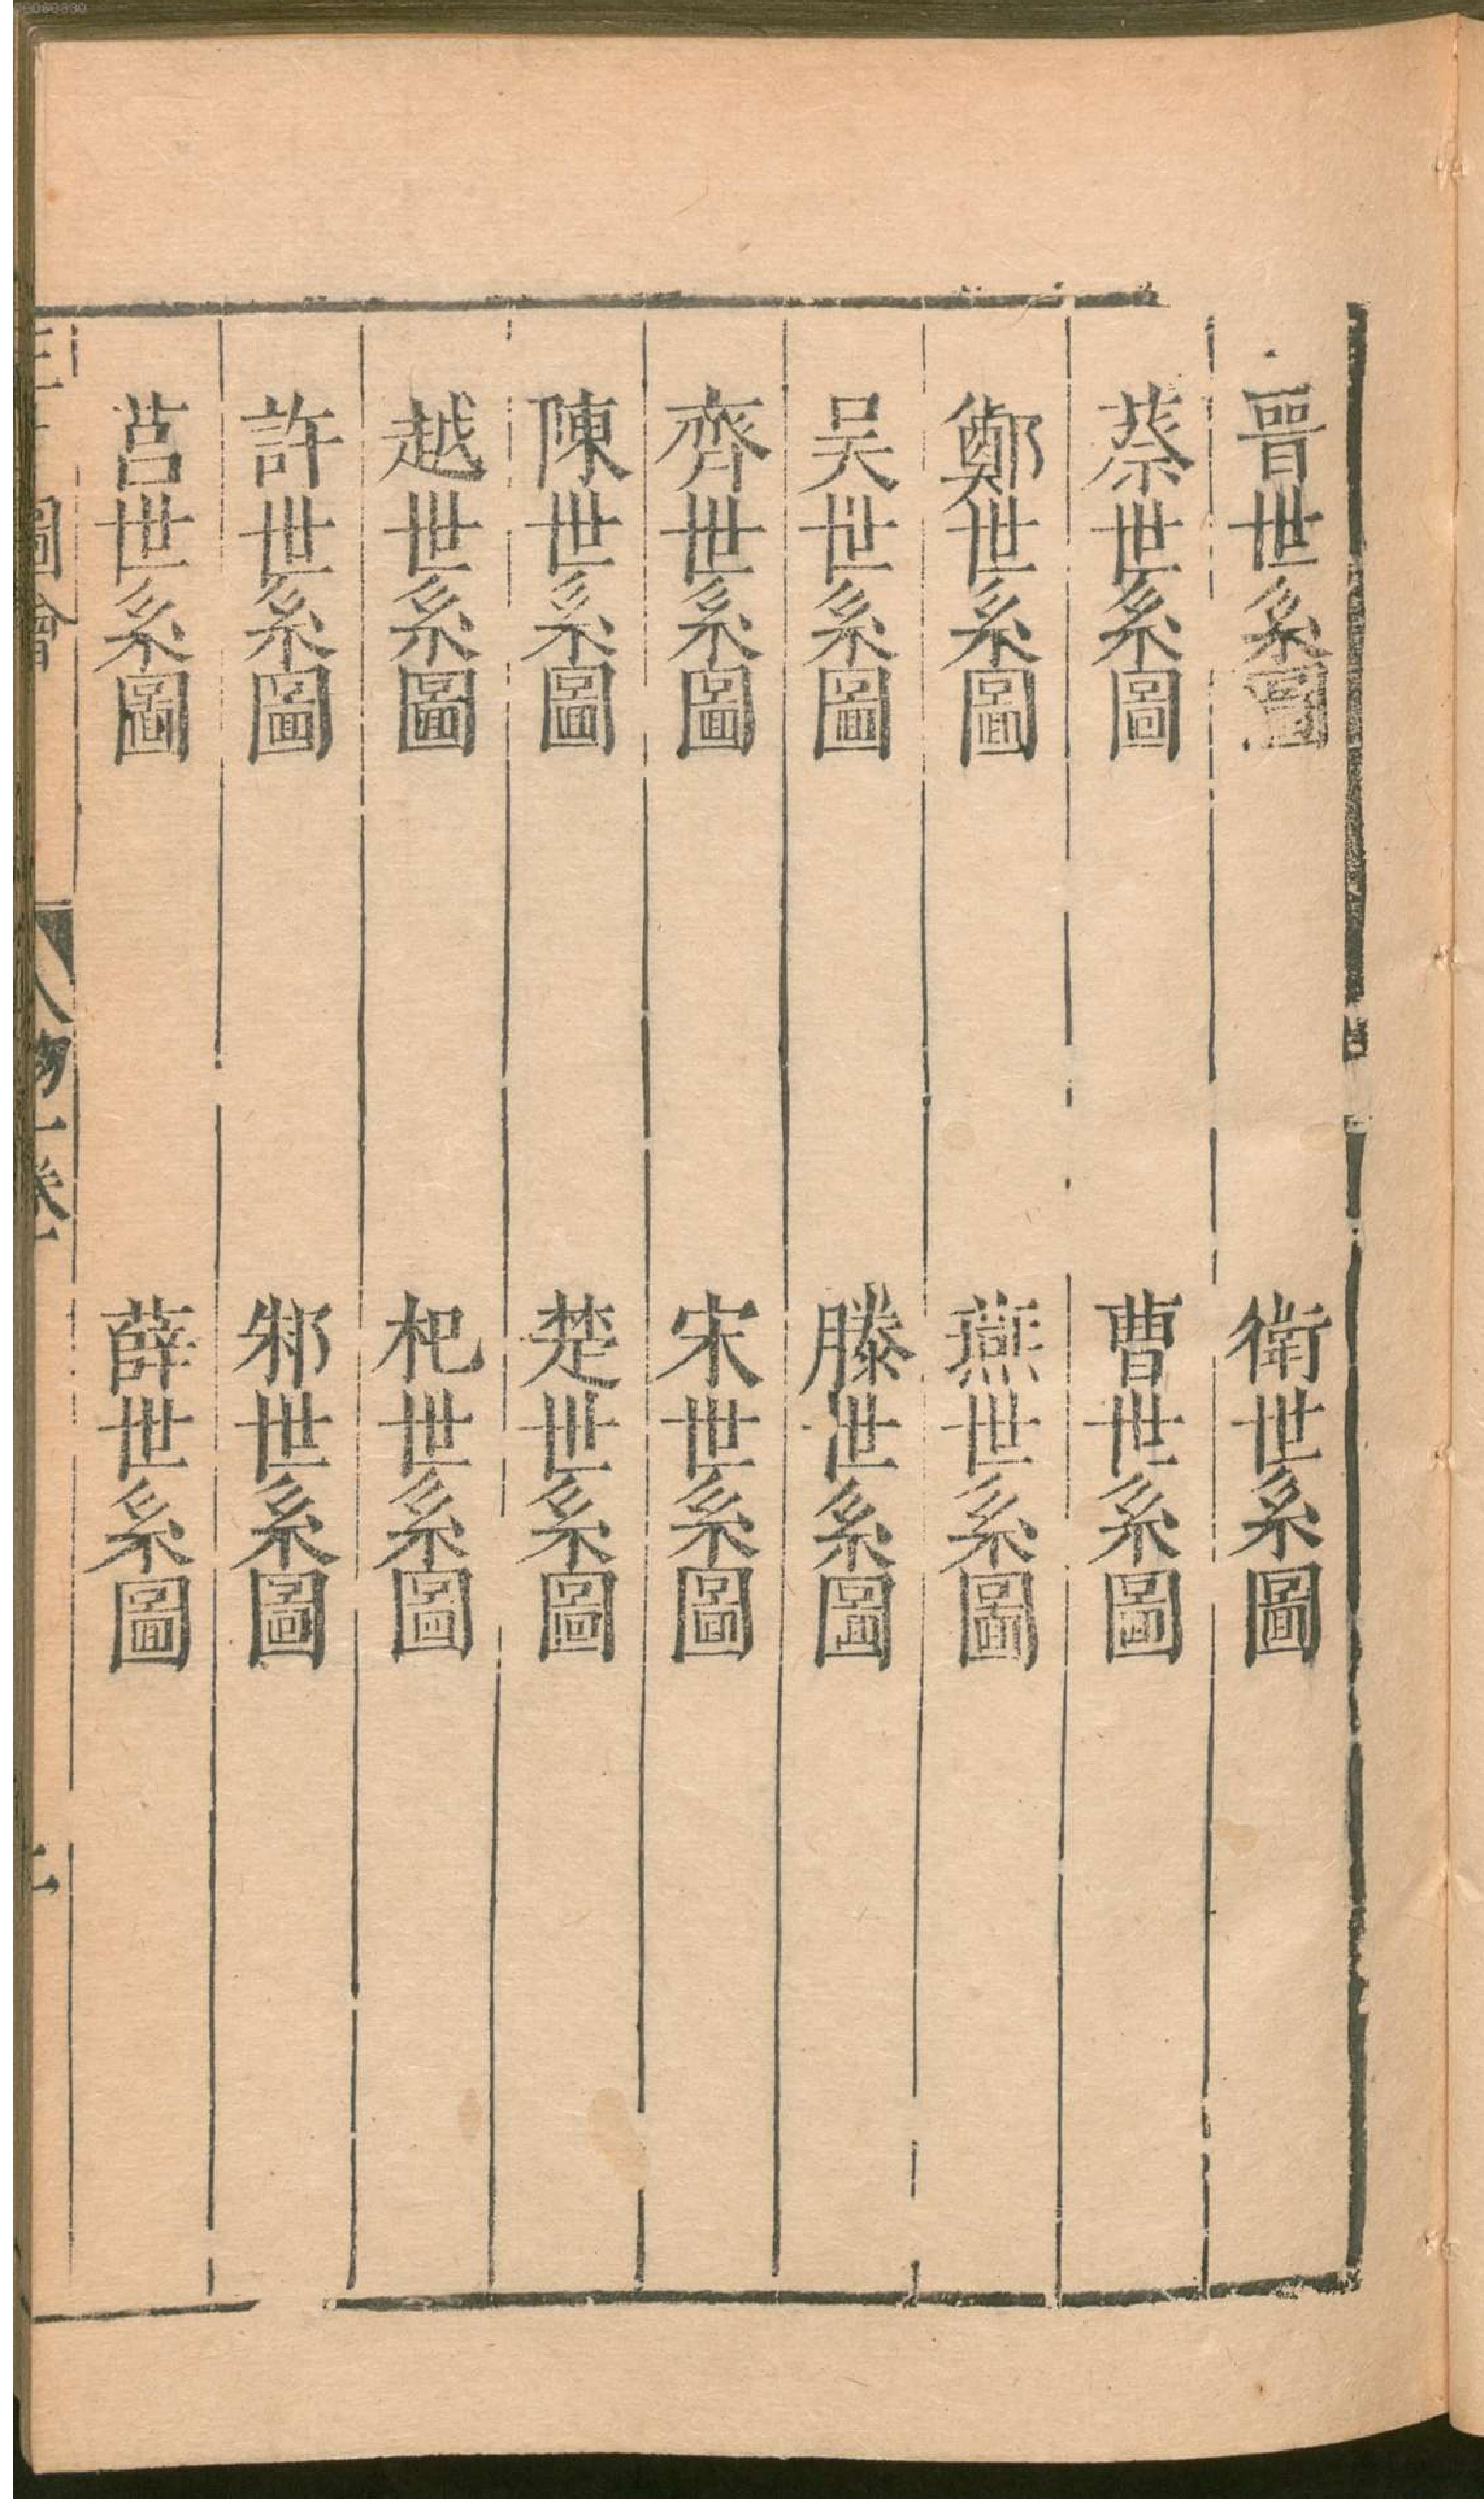 晉世系圖　衛世系圖
蔡世系圖　曹世系圖
鄭世系圖　燕世系圖
吴世系圖　滕世系圖
齊世系圖　宋世系圖
陳世系圖　楚世系圖
越世系圖　杞世系圖
許世系圖　邾世系圖
莒世系圖　薛世系圖
圖會　人物一卷